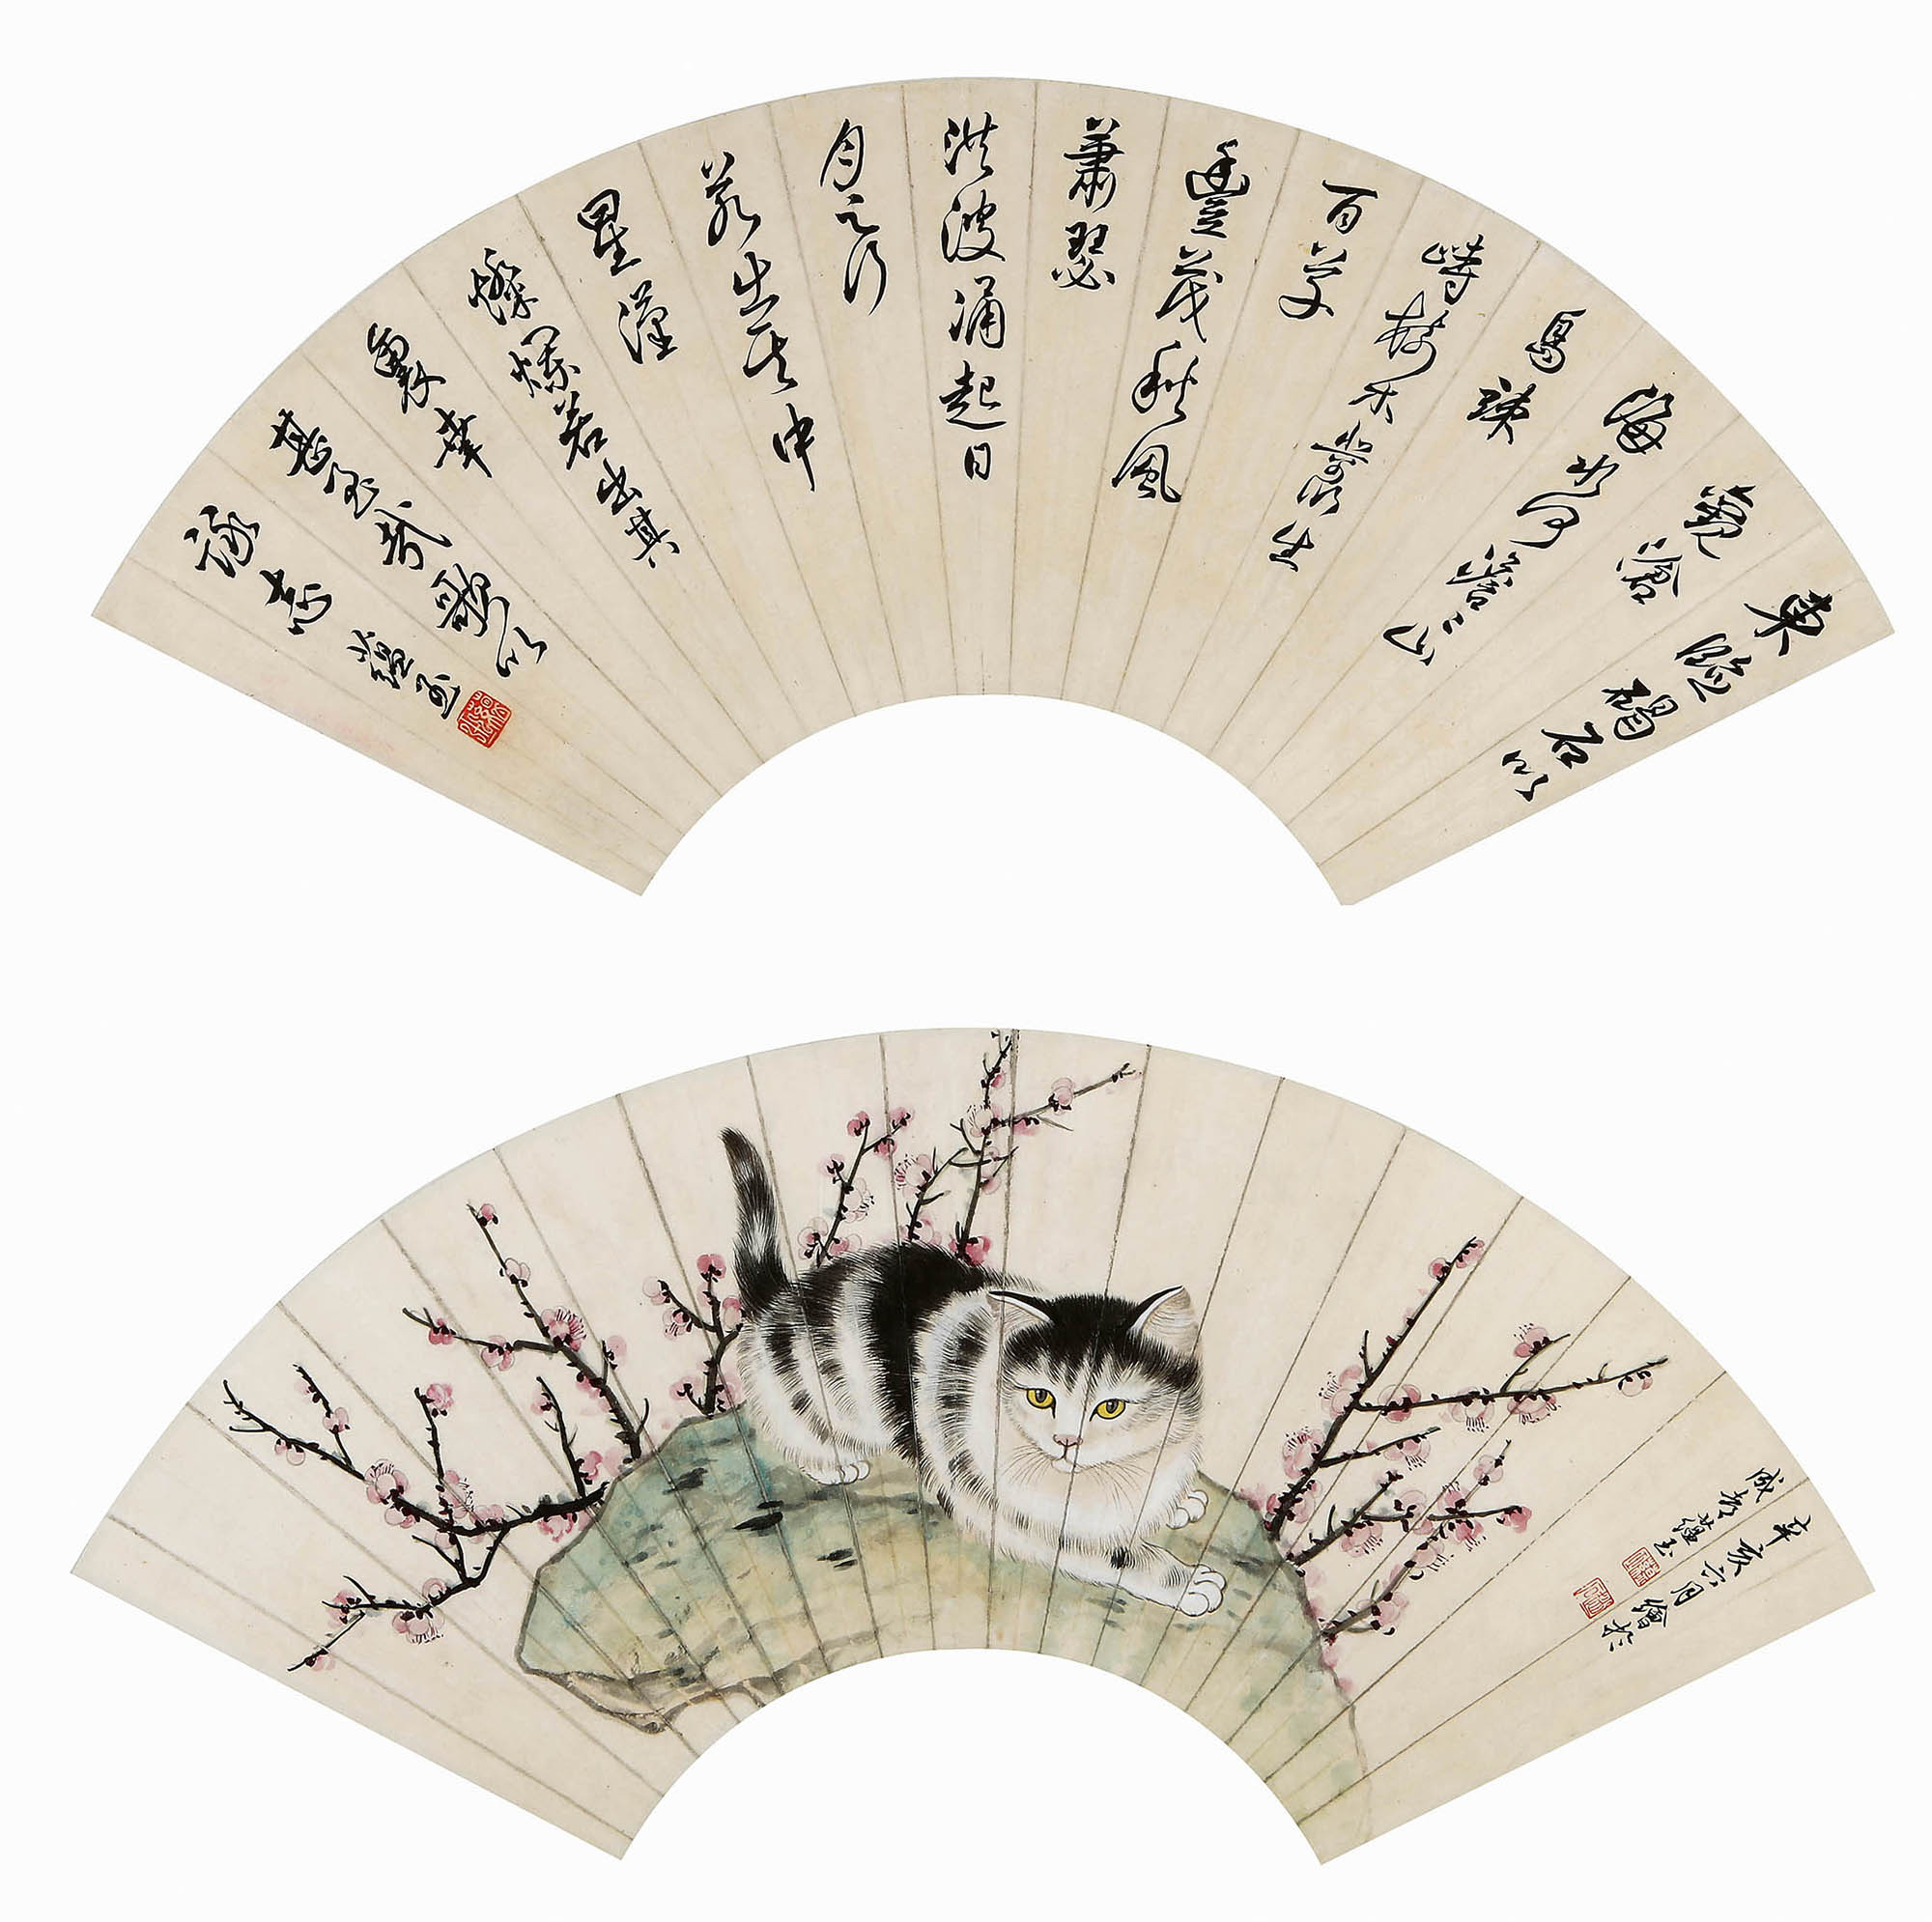 東臨碣石以
觀滄
海水何澹〻山
島竦
峙樹木叢生
百草
豐茂秋風
蕭瑟
洪波涌起日
月之行
若出其中
星漢
燦爛若出其
裏幸
甚至哉歌以
詠志 蘊玉
辛亥六月繪於
成都蘊玉